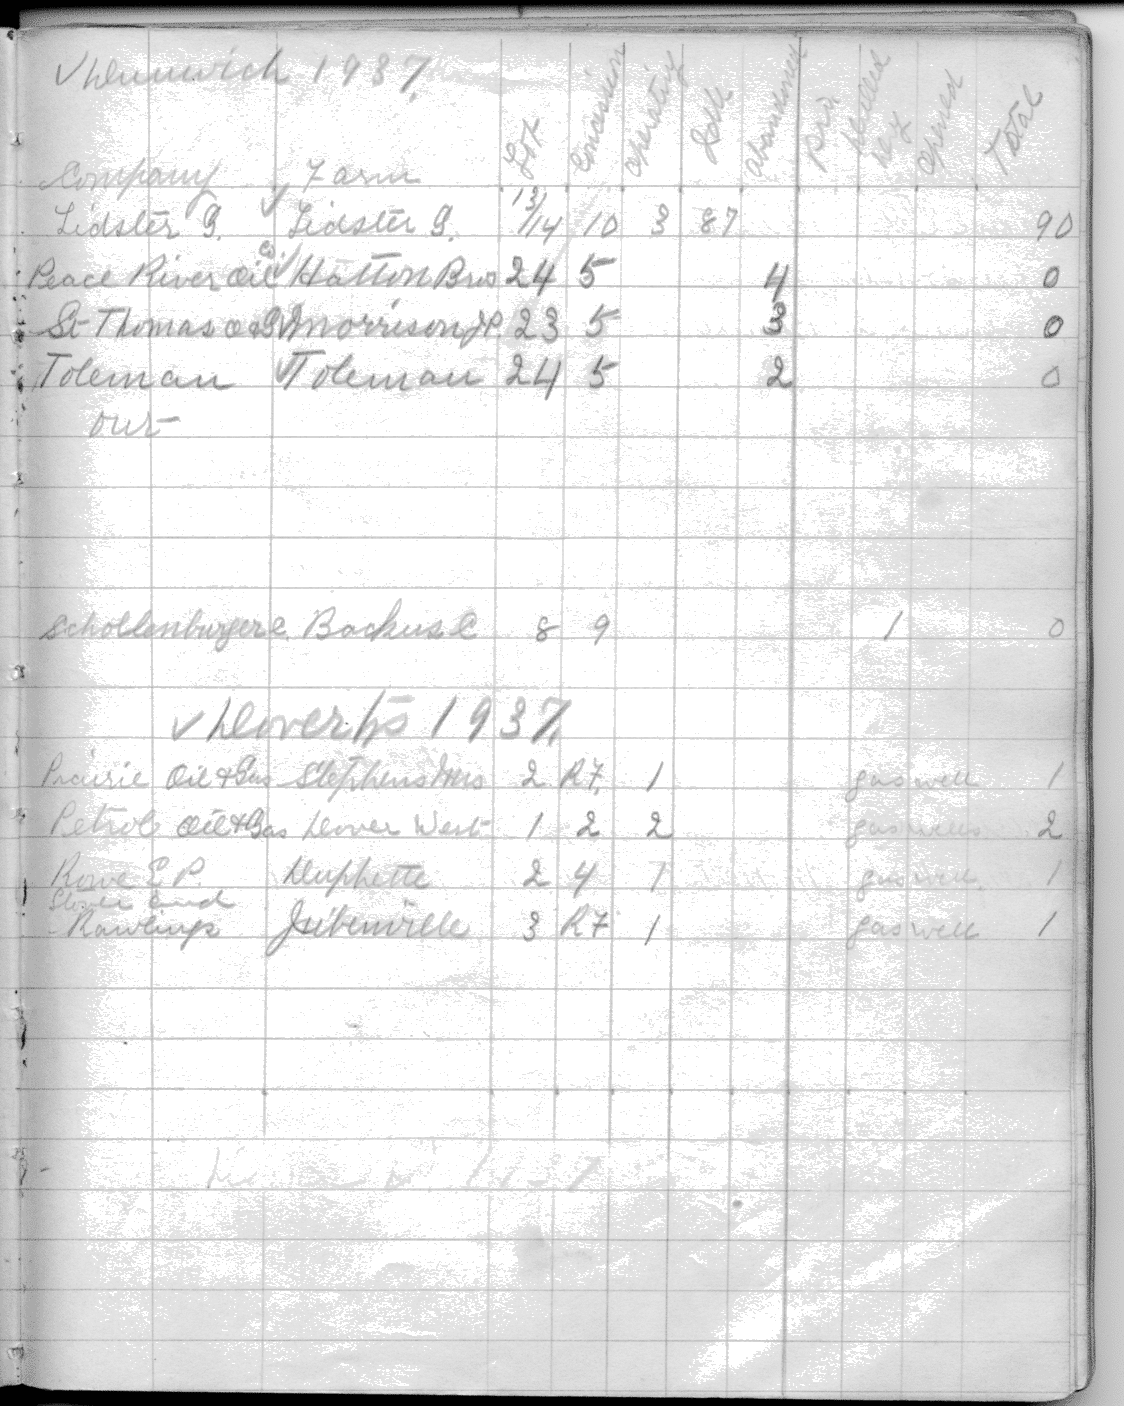 ✓ Dunwich 1937.
Company Farm Lot Concession operating Idle abandoned Drilled dry opened Total
Lidster G. ✓ Lidster G. 13/14 10 3 87 90
Peace River Oil Co. ✓ Hatton Bros 24 5 4 0
St Thomas O & G ✓ Morrison J P. 23 5 3 0
Toleman ✓ Toleman 24 5 2 0
out
Schollenburger C. Backus C 8 9 1 0
✓ Dover Tp 1937.
Prairie Oil & Gas Stephens Mrs 2 R7. 1 gas well 1
Petrol Oil & Gas Dover West 1 2 2 gas wells 2
Rowe E. P. Duphette 2 4 1 gas well. 1
and
Rawlings Jubenville 3 R7 1 gas well 1